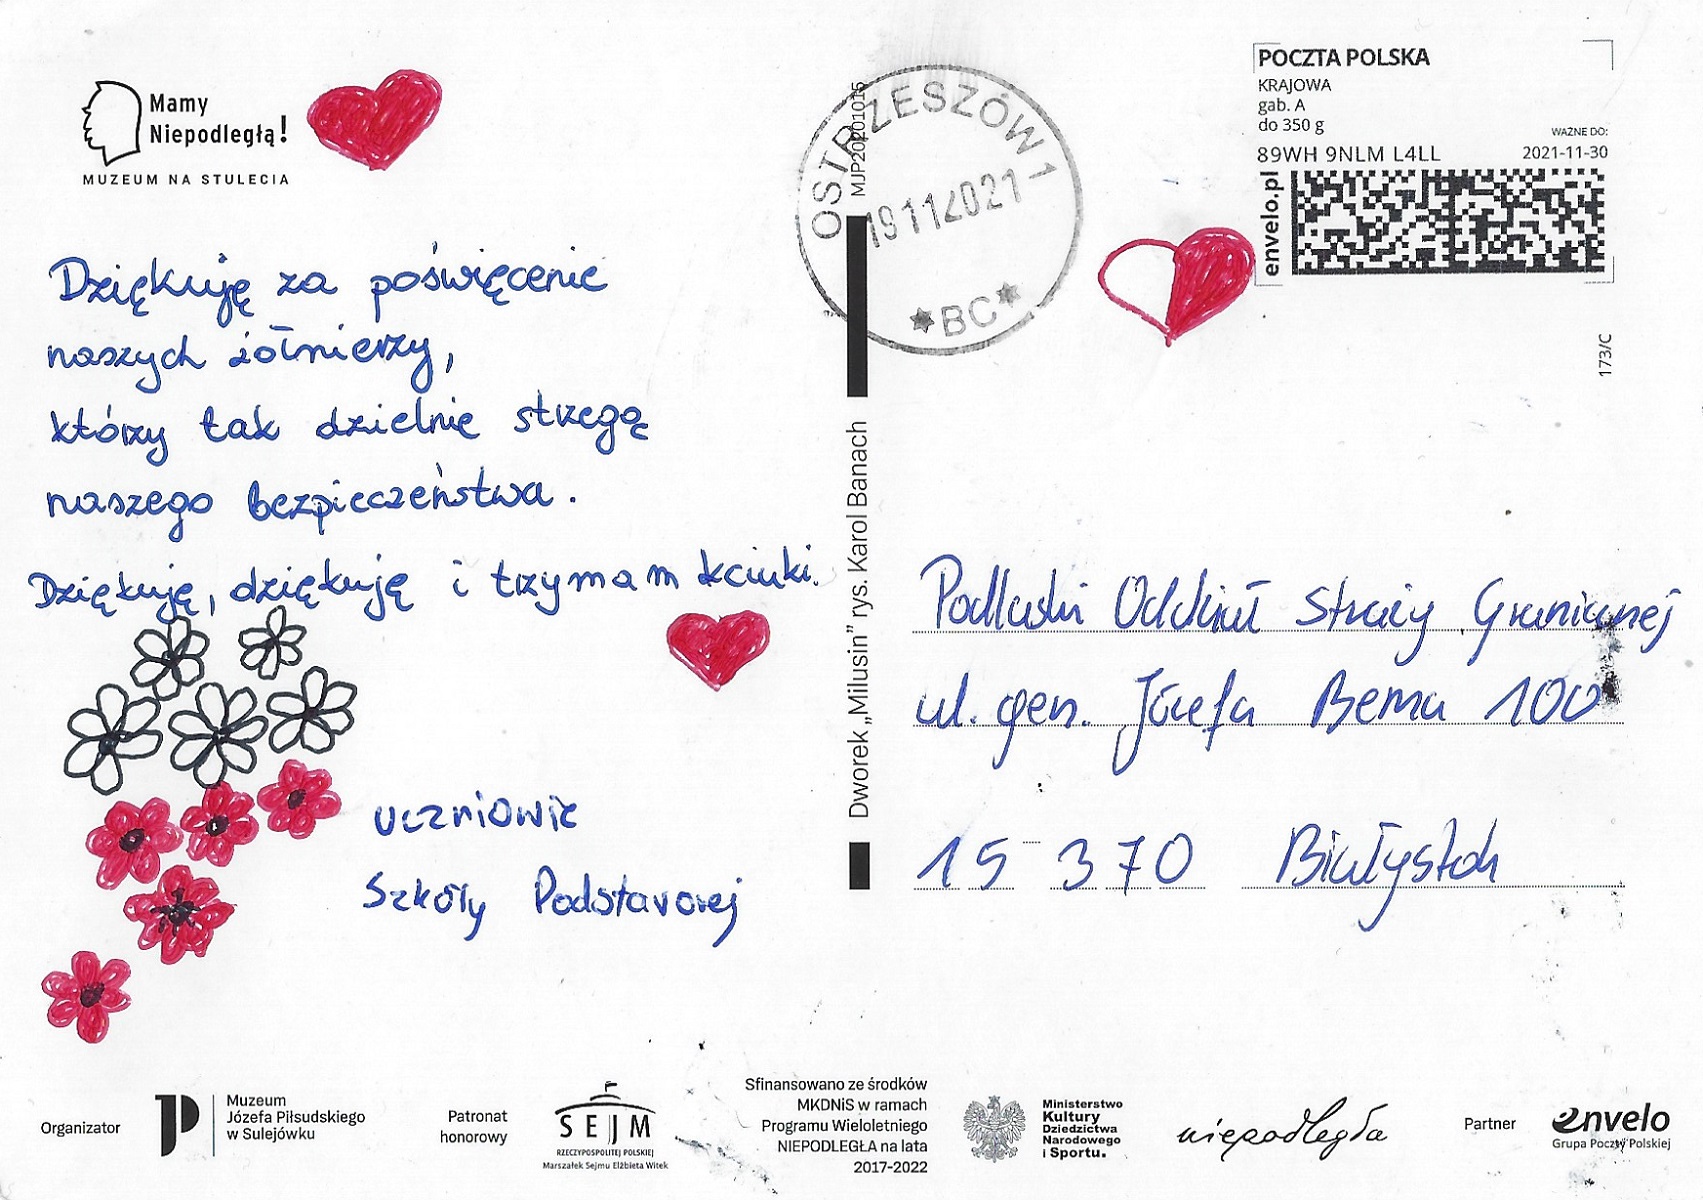 Mamy
Niepodległą!
MUZEUM NA STULECIA
Dziękuję za poświęcenie
naszych żołnierzy,
którzy tak dzielnie strzegą
naszego bezpieczeństwa.
Dziękuję, dziękuję i trzymam kciuki.
uczniowie
Szkoły Podstawowej
MJP20201015
Dworek „Milusin” rys. Karol Banach
OSTRZESZÓW 1
19112021
*BC*
POCZTA POLSKA
KRAJOWA
gab. A
do 350 g
WAŻNE DO:
89WH 9NLM L4LL 2021-11-30
envelo.pl
173/C
Podlaski Oddział Straży Granicznej
ul. gen. Józefa Bema 100
15-370 Białystok
Organizator
Muzeum
Józefa Piłsudskiego
w Sulejówku
Patronat
honorowy
SEJM
RZECZYPOSPOLITEJ POLSKIEJ
Marszałek Sejmu Elżbieta Witek
Sfinansowano ze środków
MKDNiS w ramach
Programu Wieloletniego
NIEPODLEGŁA na lata
2017-2022
Ministerstwo
Kultury
Dziedzictwa
Narodowego
i Sportu.
niepodległa
Partner
envelo
Grupa Poczty Polskiej